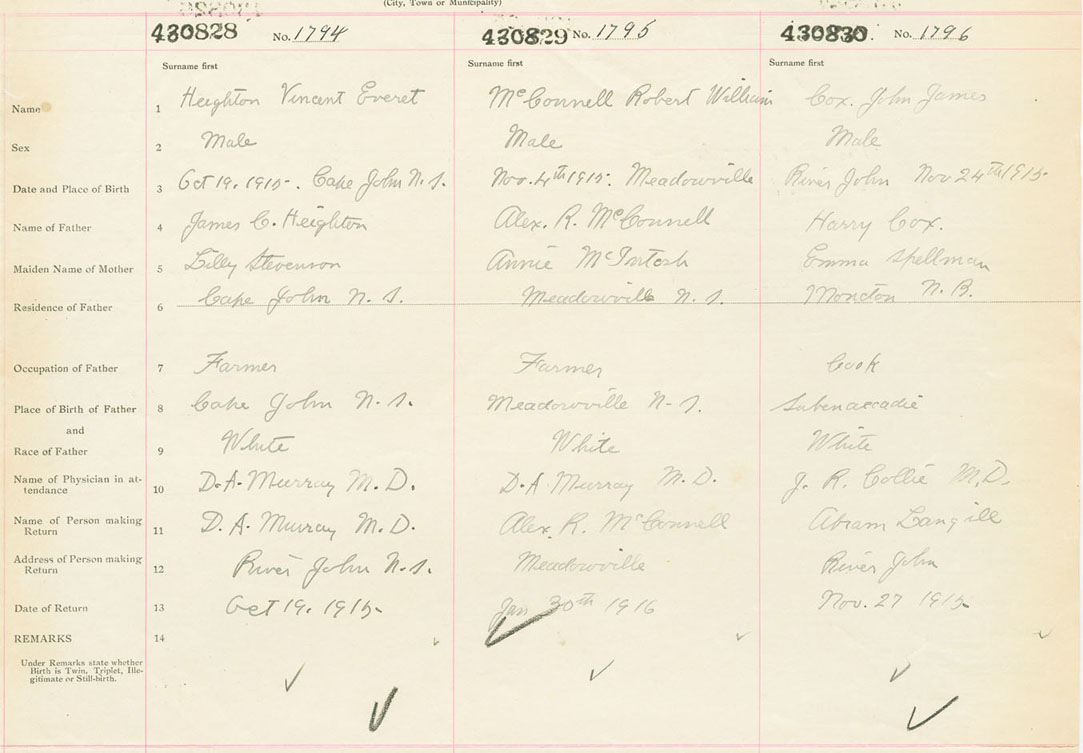 (City, Town or Municipality)
430828 No. 1794 430829 No. 1795 430830. No. 1796
Surname first Surname first Surname first
Name 1 Heighton Vincent Everet McConnell Robert William Cox. John James
Sex 2 Male Male Male
Date and Place of Birth 3 Oct 19. 1915. Cape John N.S. Nov. 4th 1915. Meadowville River John Nov 24th 1915.
Name of Father 4 James C. Heighton Alex. R. McConnell Harry Cox.
Maiden Name of Mother 5 Lilly Stevenson Annie McIntosh Emma Spellman
Residence of Father 6 Cape John N.S. Meadowville N.S. Moncton N.B.
Occupation of Father 7 Farmer Farmer Cook
Place of Birth of Father 8 Cape John N.S. Meadowville N-S. Subenaccadie
and
Race of Father 9 White White White
Name of Physician in at-
tendance 10 D.A. Murray M.D. D.A Murray M.D. J. R. Collie M.D.
Name of Person making
Return 11 D.A. Murray M.D. Alex. R. McConnell Abram Langill
Address of Person making
Return 12 River John N.S. Meadowville River John
Date of Return 13 Oct 19. 1915. Jan 30th 1916 Nov. 27 1915.
REMARKS 14
Under Remarks state whether
Birth is Twin, Triplet, Ille-
gitimate or Still-birth.